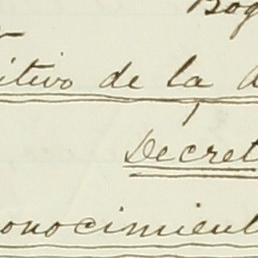 Bog
itivo de la d
Decret
onocimient